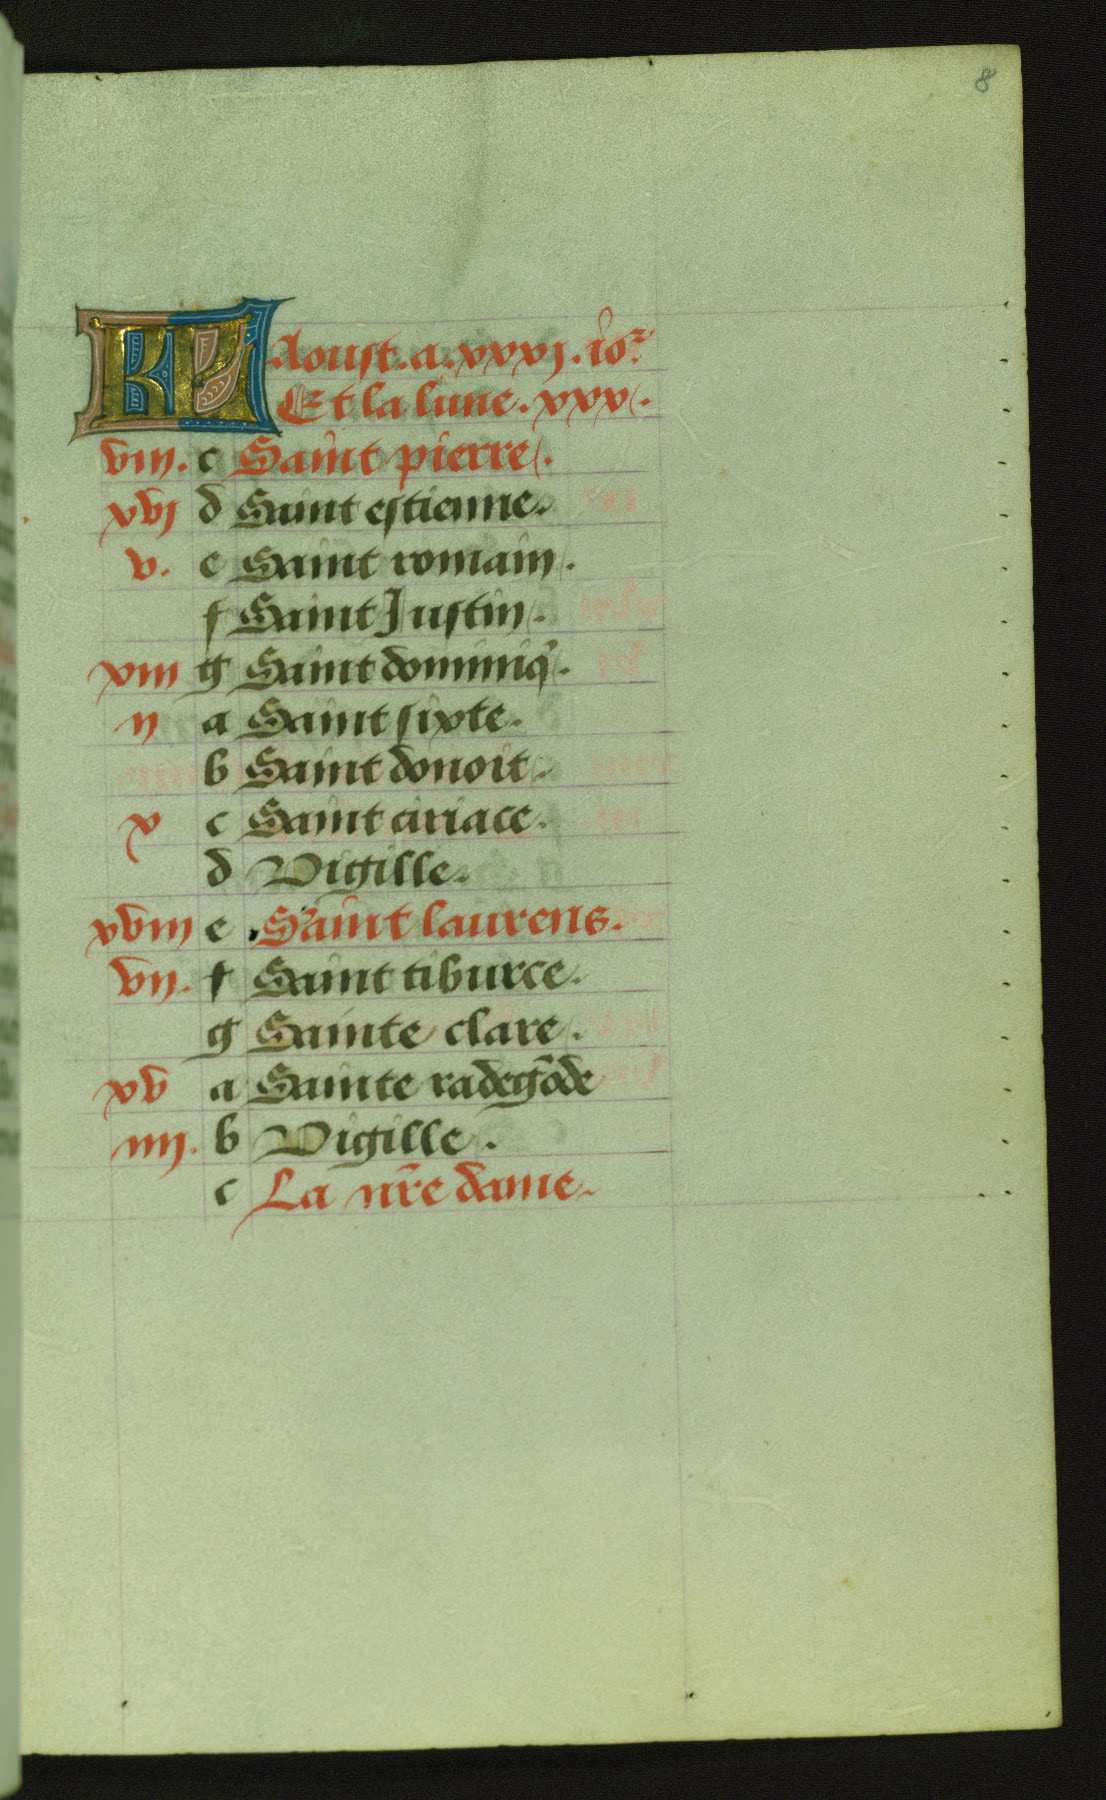 8
KL Aoust. a. xxxj. ioʳ.
Et la lune. xxx.
viii. c Saint pierre.
xvj d Saint estienne.
v. e Saint romain.
f Saint Justin.
xiii g Saint dominiq̃.
ij a Saint sixte.
b Saint donoit.
x c Saint ciriace.
d Vigille.
xviii e Saint laurens.
vij. f Saint tiburce.
g Sainte clare.
xv a Sainte radegõde
iiij. b Vigille.
c La nr̃e dame.